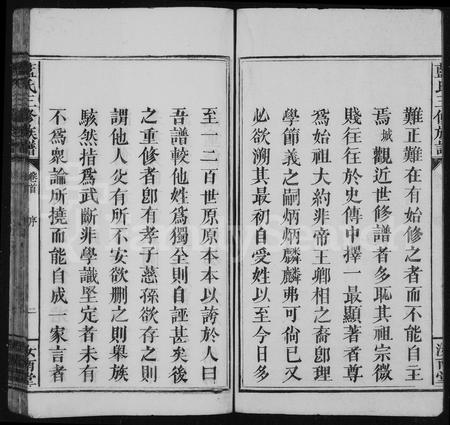 藍氏三修族譜
難正難在有始修之者而不能自主
焉城觀近世修譜者多恥其宗微
賤往往於史傳中擇一最顯著者尊
爲始祖大約非帝王卿相之裔卽理
學節義之嗣炳炳麟麟弗可尙已又
必欲溯其最初自受姓以至今日多
至一二百世原原本本以誇於人曰
吾譜較他姓爲獨全則自誣甚矣後
之重修者卽有孝子慈孫欲存之則
謂他人必有所不安欲刪之則舉族
駭然指爲武斷非學識堅定者未有
不爲衆論所撓而能自成一家言者
藍氏三修族譜
卷首 序
二
汝南堂